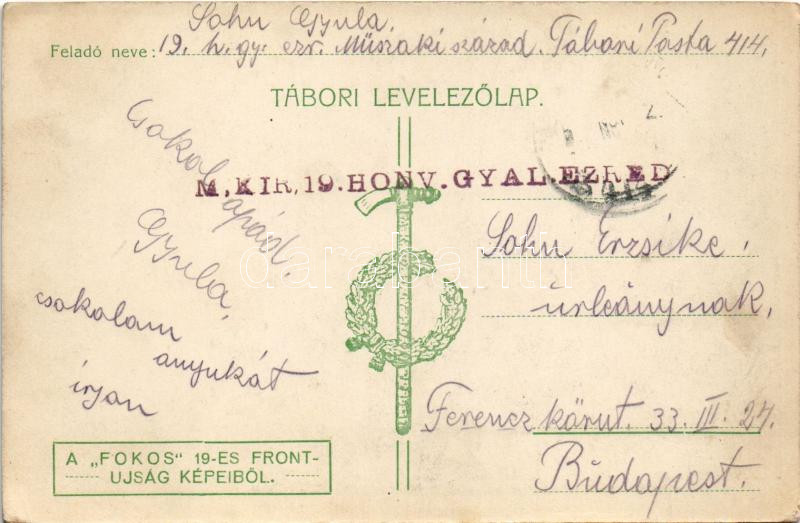 Sohu Gyula.
Feladó neve: 19. h. gy. ezr. Műszaki század. Tábori Posta 414.
TÁBORI LEVELEZŐLAP.
M. KIR. 19. HONV. GYAL. EZRED
414
Csokol apád.
Gyula.
csokolam
anyukát
irjan
Sohu Erzsike.
urleánynak,
Ferencz körut. 33. III. 27.
Budapest.
A „FOKOS" 19-ES FRONT-
UJSÁG KÉPEIBŐL.
darabanth